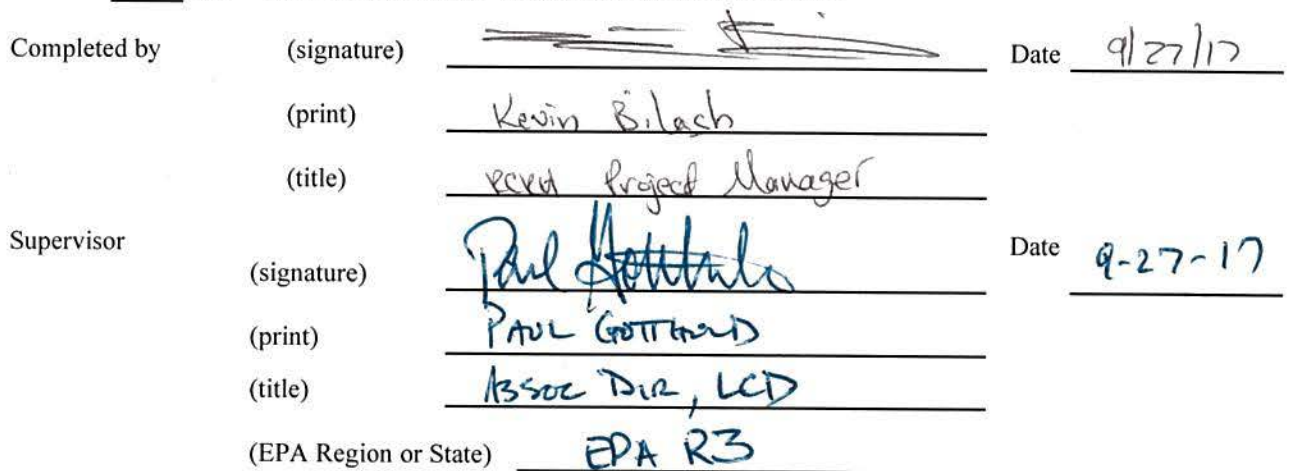 Completed by (signature) Date 9/27/17
(print) Kevin Bilash
(title) RCRA Project Manager
Supervisor (signature) Paul Gotthold Date 9-27-17
(print) PAUL GOTTHOLD
(title) ASSOC DIR, LCD
(EPA Region or State) EPA R3